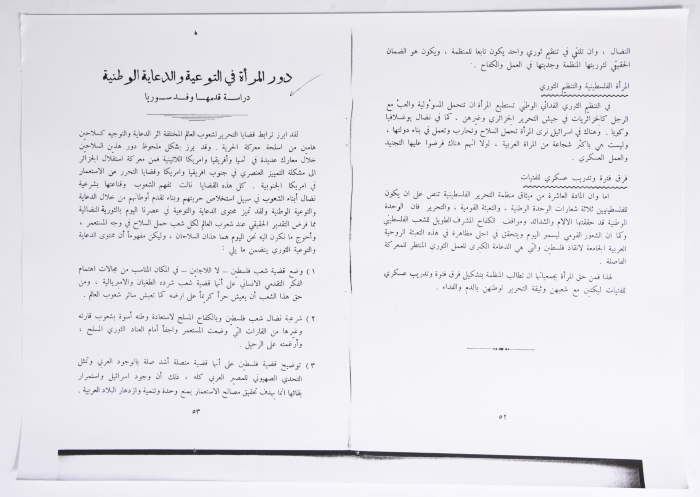 النضال ، وان تلتقي في تنظيم ثوري واحد يكون تابعا للمنظمة ، ويكون هو الضمان
الحقيقي لثوريتها المنظمة وجديتها في العمل والكفاح .
المرأة الفلسطينية والتنظيم الثوري
في التنظيم الثوري الفدائي الوطني تستطيع المرأة ان تتحمل المسؤولية والعبء مع
الرجل كالجزائريات في جيش التحرير الجزائري وغيرهن ، كما في نضال يوغسلافيا
وكوبا . وهناك في اسرائيل نرى المرأة تحمل السلاح وتحارب وتعمل في بناء دولتها ،
وليست هي باكثر شجاعة من المرأة العربية ، لولا انهم هناك فرضوا عليها التجنيد
والعمل العسكري .
فرق فترة وتدريب عسكري للفتيات
اما وان المادة العاشرة من ميثاق منظمة التحرير الفلسطينية تنص على ان يكون
للفلسطينيين ثلاثة شعارات الوحدة الوطنية ، والتعبئة القومية ، والتحرير فان الوحدة
الوطنية قد حققتها الآلام والشدائد ومواقف الكفاح المشرف الطويل للشعب الفلسطيني
وكما ان الشعور القومي ليسمو اليوم ويتحقق في اجلى مظاهره في هذه التعبئة الروحية
العربية الجامعة لانقاذ فلسطين والتي هي الدعامة الكبرى للعمل الثوري المنتظر للمعركة
الفاصلة .
لهذا فمن حق المرأة بجمعياتها ان تطالب المنظمة بتشكيل فرق فترة وتدريب عسكري
للفتيات ليكتبن مع شعبهن وثيقة التحرير لوطنهن بالدم والفداء .
٥٢
دور المرأة في التوعية والدعاية الوطنية
دراسة قدمها وفد سوريا
لقد ابرز ترابط قضايا التحرير لشعوب العالم المختلفة اثر الدعاية والتوجيه كسلاحين
هامين من اسلحة معركة الحرية . وقد برز بشكل ملحوظ دور هذين السلاحين
خلال معارك عديدة في آسيا وأفريقيا وامريكا اللاتينية فمن معركة استقلال الجزائر
الى مشكلة التمييز العنصري في جنوب افريقيا وامريكا وقضايا التحرر من الاستعمار
في امريكا الجنوبية . كل هذه القضايا نالت تفهم الشعوب وقناعتها بشرعية
نضال أبناء الشعوب في سبيل استخلاص حريتهم وبناء تقدم أوطانهم من خلال الدعاية
والتوعية الوطنية ولقد تميز محتوى الدعاية والتوعية في عصرنا اليوم بالثورية النضالية
مما فرض التقدير الحقيقي عند شعوب العالم لكل شعب حمل السلاح في وجه المستعمر ،
وأحوج ما نكون اليه نحن اليوم هما هذان السلاحان ، وليكن مفهوماً أن محتوى الدعاية
والتوعية الثوري يتضمن ما يلي :
١ ) وضع قضية شعب فلسطين ... لا اللاجئين ... في المكان المناسب من مجالات اهتمام
الفكر التقدمي الانساني على أنها قضية شعب شرده الطغيان والامبريالية ، ومن
حق هذا الشعب أن يعيش حراً كريماً على ارضه كما تعيش سائر شعوب العالم .
٢ ) شرعية نضال شعب فلسطين وبالكفاح المسلح لاستعادة وطنه أسوة بشعوب قارته
وغيرها من القارات التي وضعت المستعمر واجفاً أمام العناد الثوري المسلح ،
وأرغمته على الرحيل .
٣ ) توضيح قضية فلسطين على أنها قضية متصلة أشد صلة بالوجود العربي وتمثل
التحدي الصهيوني للمصير العربي كله ، ذلك أن وجود اسرائيل واستمرار
بقائها انما يهدف تحقيق مصالح الاستعمار بمنع وحدة وتنمية وازدهار البلاد العربية .
٥٣